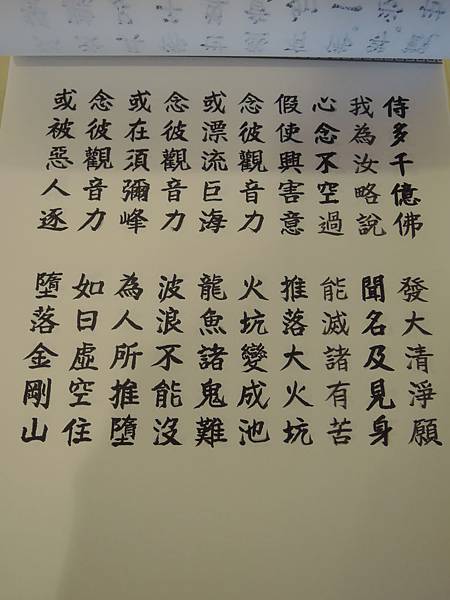 侍多千億佛 發大清淨願
我為汝略說 聞名及見身
心念不空過 能滅諸有苦
假使興害意 推落大火坑
念彼觀音力 火坑變成池
或漂流巨海 龍魚諸鬼難
念彼觀音力 波浪不能沒
或在須彌峰 為人所推墮
念彼觀音力 如日虛空住
或被惡人逐 墮落金剛山